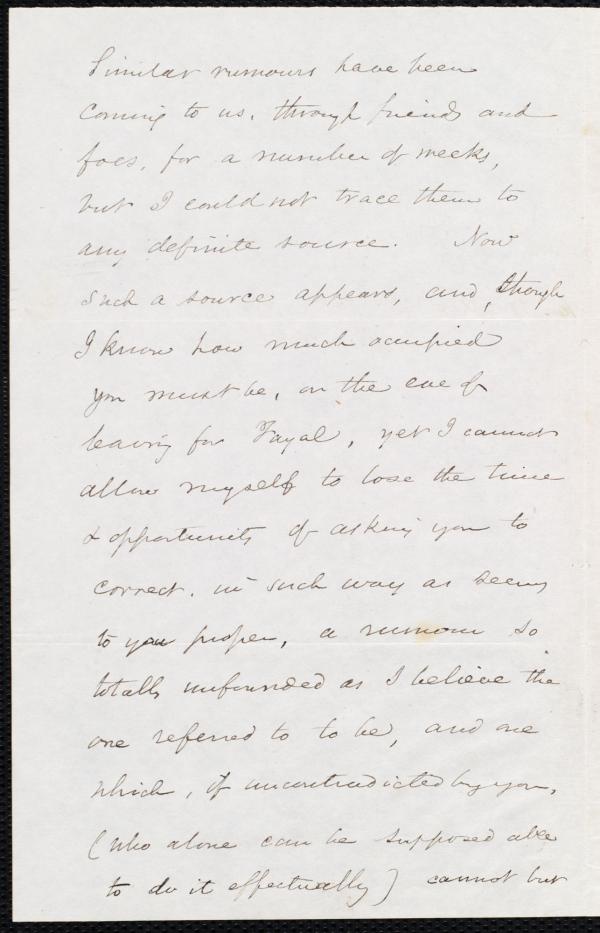 Similar rumours have been
coming to us, through friends and
foes, for a number of weeks,
but I could not trace them to
any definite source. Now
such a source appears, and, though
I know how much occupied
you must be, on the eve of
leaving for Fayal, yet I cannot
allow myself to lose the time
& opportunity of asking you to
correct, in such way as seems
to you proper, a rumour so
totally unfounded as I believe the
one referred to to be, and one
which, if uncontradicted by you,
(who alone can be supposed able
to do it effectually) cannot but